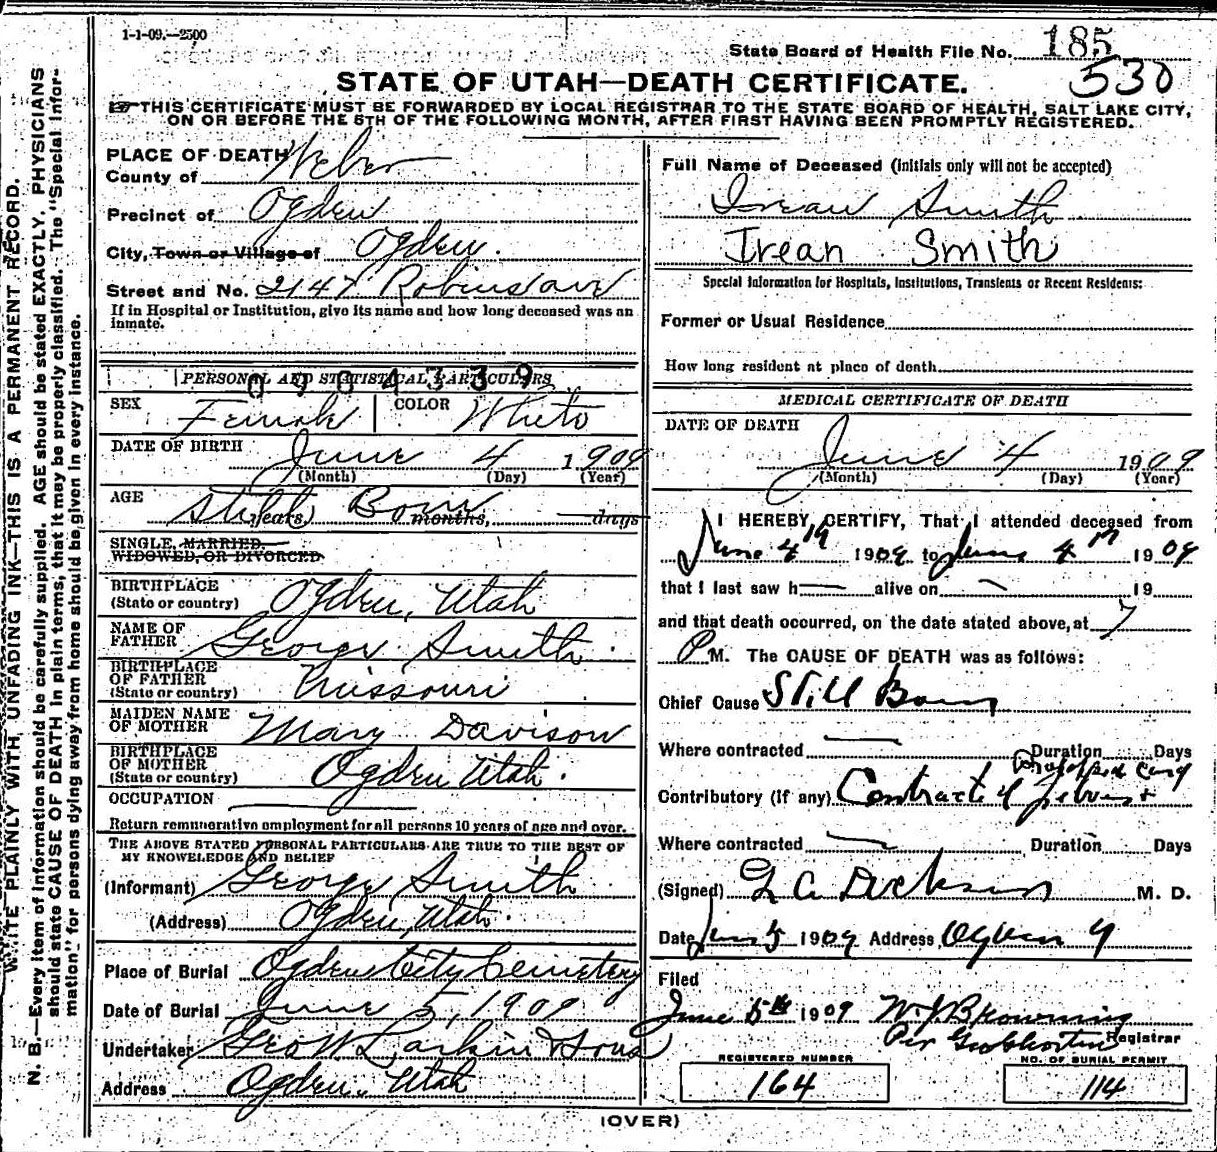 1-1-09.—2500
State Board of Health File No. 185
530
STATE OF UTAH—DEATH CERTIFICATE.
☞THIS CERTIFICATE MUST BE FORWARDED BY LOCAL REGISTRAR TO THE STATE BOARD OF HEALTH, SALT LAKE CITY,
ON OR BEFORE THE 5TH OF THE FOLLOWING MONTH, AFTER FIRST HAVING BEEN PROMPTLY REGISTERED.
WRITE PLAINLY WITH UNFADING INK—THIS IS A PERMANENT RECORD.
N. B.—Every item of information should be carefully supplied. AGE should be stated EXACTLY. PHYSICIANS
should state CAUSE OF DEATH in plain terms, that it may be properly classified. The "Special Infor-
mation" for persons dying away from home should be given in every instance.
PLACE OF DEATH
County of Weber
Precinct of Ogden
City, Town or Village of Ogden.
Street and No. 2147 Robins ave
If in Hospital or Institution, give its name and how long deceased was an
inmate.
PERSONAL AND STATISTICAL PARTICULARS
0704339
SEX Female COLOR White
DATE OF BIRTH June 4 1909
(Month) (Day) (Year)
AGE still years, Born months, days
SINGLE, MARRIED
WIDOWED, OR DIVORCED
BIRTHPLACE
(State or country) Ogden, Utah
NAME OF
FATHER George Smith
BIRTHPLACE
OF FATHER
(State or country) Missouri
MAIDEN NAME
OF MOTHER Mary Davison
BIRTHPLACE
OF MOTHER
(State or country) Ogden Utah.
OCCUPATION
Return remunerative employment for all persons 10 years of age and over.
THE ABOVE STATED PERSONAL PARTICULARS ARE TRUE TO THE BEST OF
MY KNOWLEDGE AND BELIEF
(Informant) George Smith
(Address) Ogden, Utah.
Place of Burial Ogden City Cemetery
Date of Burial June 5, 1909
Undertaker Geo W. Larkin & Sons
Address Ogden, Utah
Full Name of Deceased (initials only will not be accepted)
Irean Smith
Irean Smith
Special Information for Hospitals, Institutions, Transients or Recent Residents:
Former or Usual Residence
How long resident at place of death
MEDICAL CERTIFICATE OF DEATH
DATE OF DEATH
June 4 1909
(Month) (Day) (Year)
I HEREBY CERTIFY, That I attended deceased from
June 4th 1909 to June 4th 1909
that I last saw h alive on 19
and that death occurred, on the date stated above, at 7
P M. The CAUSE OF DEATH was as follows:
Chief Cause Still Born
Where contracted Duration Days
Prolapsed cord
Contributory (if any) Contracted Pelvis +
Where contracted Duration Days
(Signed) Dickson M. D.
Date June 5 1909 Address Ogden
Filed
June 5th 1909 W. J. Browning
Per Registrar
REGISTERED NUMBER
164
NO. OF BURIAL PERMIT
114
(OVER)